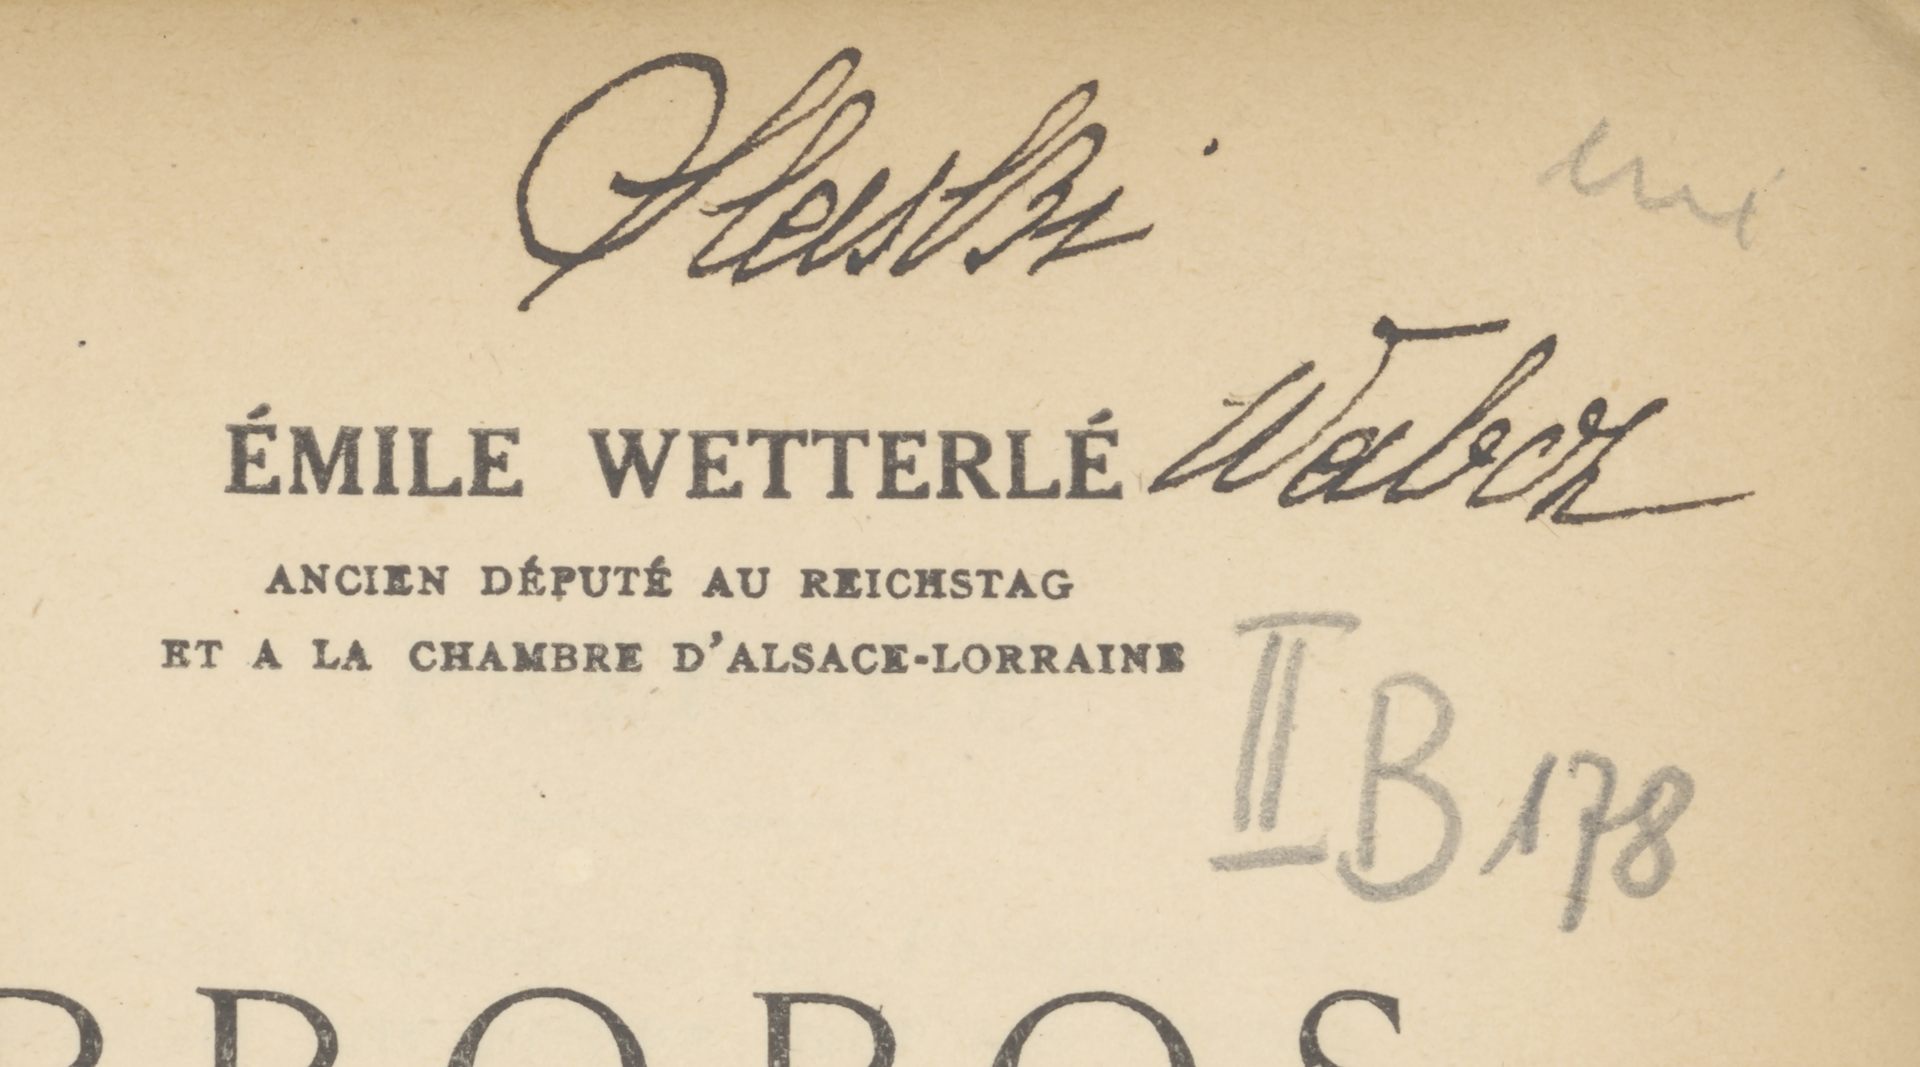 ÉMILE WETTERLÉ
ANCIEN DÉPUTÉ AU REICHSTAG
ET A LA CHAMBRE D'ALSACE-LORRAINE
II B 178
PROPOS